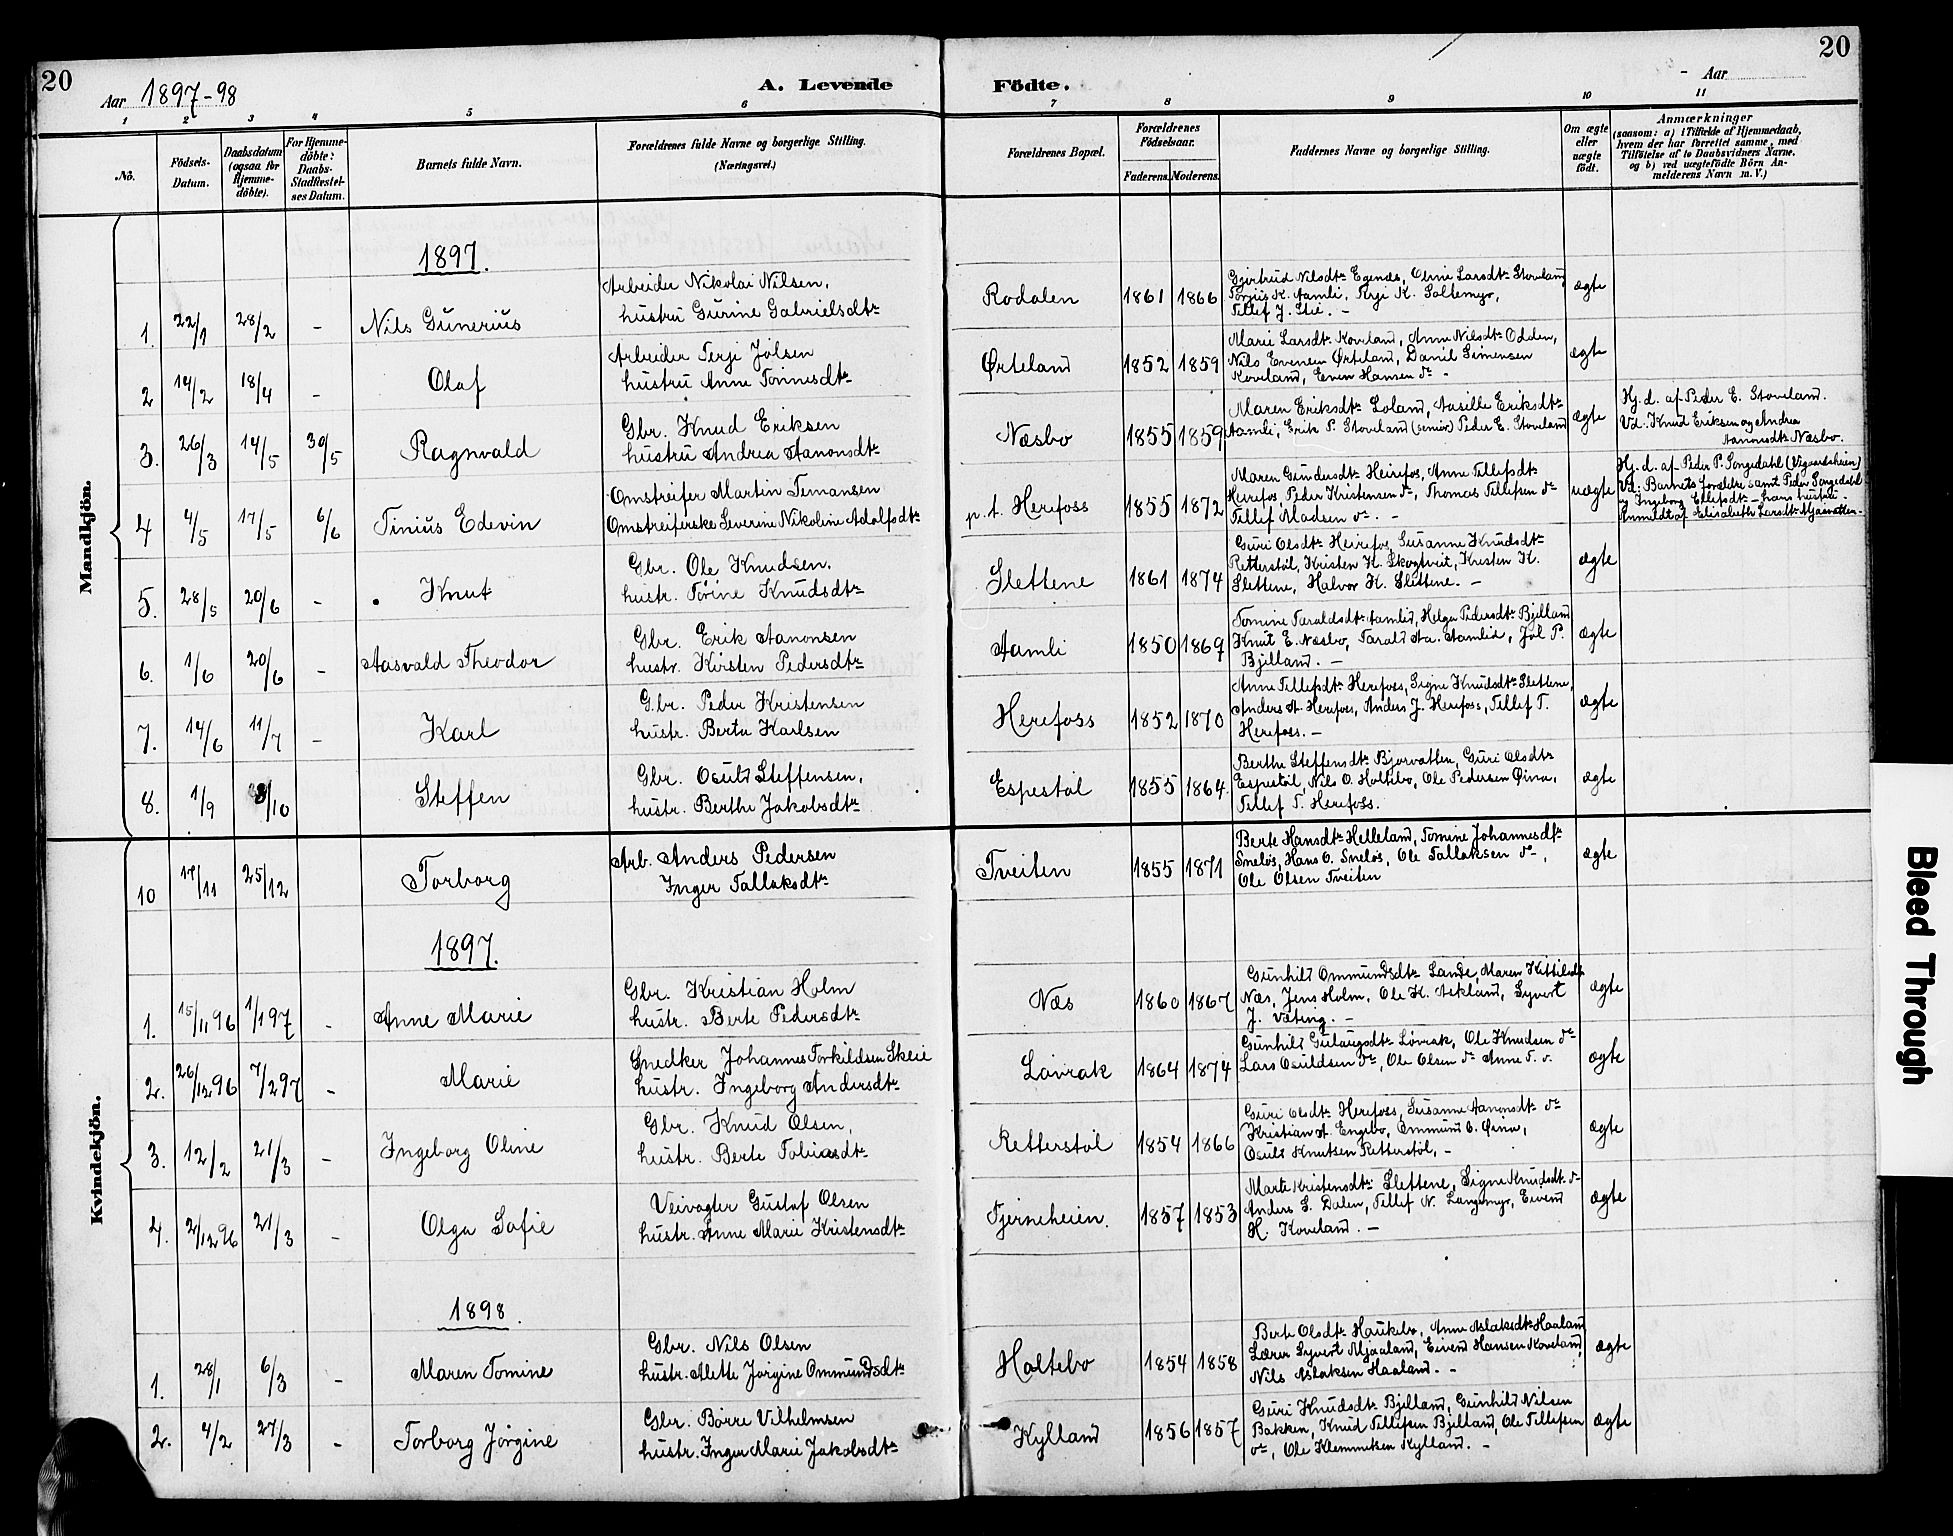 20
20
Aar 1897-98
A. Levende Födte.
Aar
1 2 3 4 5 6 7 8 9 10 11
No.
Födsels-Datum.
Daabsdatum (ogsaa for Hjemme-döbte).
For Hjemme-döbte: Daabs-Stadfæstel-ses Datum.
Barnets fulde Navn.
Forældrenes fulde Navne og borgerlige Stilling. (Næringsvei.)
Forældrenes Bopæl.
Forældrenes Födselsaar.
Faderens. Moderens.
Faddernes Navne og borgerlige Stilling.
Om ægte eller uægte födt.
Anmærkninger
(saasom: a) i Tilfælde af Hjemmedaab,
hvem der har forrettet samme, med
Tilföielse af to Daabsvidners Navne,
og b) ved uægtefödte Börn An-
melderens Navn m. V.)
Mandkjön.
1897.
1. 22/1 28/2 - Nils Gunerius
Arbeider Nikolai Nilsen,
hustru Gurine Gabrielsdtr
Rodalen 1861 1866
Gjertrud Nilsdtr Egenæs, Oline Larsdtr Stoveland,
Torjus K. Aamli, Terje K. Soltemyr,
Tellef J. Stie. -
ægte
2 14/2 18/4 - Olaf
Arbeider Terje Jølsen
hustru Anne Tønnesdtr
Ørteland 1852 1859
Marie Larsdtr Koveland, Anne Nilsdtr Odden,
Nils Evensen Ørteland, Daniel Simensen
Koveland, Even Hansen do -
ægte
3. 26/3 14/5 30/5 Ragnvald
Gbr. Knud Eriksen
hustru Andrea Aanonsdtr
Næsbo 1855 1859
Maren Eriksdtr Loland, Aasille Eriksdtr
Aamli, Erik P. Stoveland (senior) Peder E. Stoveland
ægte
Hj. d. af Peder E. Stoveland.
Vd. Knud Eriksen og Andrea
Aanonsdtr Næsbo.
4 4/5 17/5 6/6 Tinius Edevin
Omstreifer Martin Temansen
Omstreiferske Severine Nikoline Adolfsdtr
p. t. Herefoss 1855 1872
Maren Gundersdtr Heirefos, Anne Tellefsdtr
Herefos, Peder Kristensen do, Thomas Tellefsen do
Tellef Madsen do. -
uægte
Hj. d. af Peder P. Songedahl (Vegaardsheien)
Vd: Barnets forældre samt Peder Songedahl
og Ingeborg Ellefsdtr - hans hustru.
Anmeldt af Elisabeth Larsdtr Mjaavatten -
5. 28/5 20/6 - Knut
Gbr. Ole Knudsen.
hustr. Torine Knudsdtr
Slettene 1861 1874
Guri Olsdtr Heirefos, Susanne Knudsdtr
Retterstøl, Kristen K. Skogtveit, Kristen K.
Slettene, Halvor K. Slettene. -
ægte
6. 1/6 20/6 - Aasvald Theodor
Gbr. Erik Aanonsen
hustr. Kirsten Pedersdtr
Aamli 1850 1869
Tomine Taraldsdtr Aamlid, Helga Pedersdtr Bjelland
Knut E. Næsbo, Tarald Aa. Aamlid, Jøl P.
Bjelland. -
ægte
7. 14/6 11/7 - Karl
Gbr. Peder Kristensen
hustr. Berta Karlsen
Herefoss 1852 1870
Anne Tellefsdtr Herefoss, Signe Knudsdtr Slettene,
Anders A. Herefoss, Anders J. Herefoss, Tellef T.
Herefoss. -
ægte
8. 1/9 3/10 Steffen
Gbr. Osuld Steffensen,
hustr. Berthe Jakobsdtr
Espestøl 1855 1864
Berthe Steffensdtr Bjorvatten, Guri Olsdtr
Espestøl, Nils O. Holtebo, Ole Pedersen Øina,
Tellef T. Herefoss.
ægte
Kvindekjön.
10 17/11 25/12 Torborg
Arb. Anders Pedersen
Inger Tallaksdtr
Tveiten 1855 1871
Berte Hansdtr Helleland, Tomine Johannesdtr
Sneløs, Hans O. Sneløs, Ole Tallaksen do,
Ole Olsen Tveiten
ægte
1897.
1. 15/11 96 1/1 97 - Anne Marie
Gbr. Kristian Holm
hustr. Berte Pedersdtr
Næs 1860 1867
Gunhild Ommundsdtr Lande, Maren Kittilsdtr
Næs, Jens Holm, Ole K. Askland, Syvert
J. Væting. -
ægte
2. 26/12 96 7/2 97 - Marie
Snedker Johannes Torkildsen Skeie
hustr. Ingeborg Andersdtr
Løvrak 1864 1874
Gunhild Gulaugsdtr Løvrak, Ole Knudsen do
Lars Osuldsen do, Ole Olsen do Anne T. do.
ægte
3. 12/2 21/3 - Ingeborg Oline
Gbr. Knud Olsen,
hustr. Berte Tobiasdtr
Retterstøl 1854 1866
Guri Olsdtr Herefoss, Susanne Aanonsdtr do
Kristian A. Engebo, Ommund O. Øina,
Osuld Knutsen Retterstøl, -
ægte
4. 2/12 96 21/3 - Olga Sofie
Veivogter Gustaf Olsen
hustr. Anne Marie Kristensdtr
Tjerneheien. 1857 1853
Marte Kristensdtr Slettene, Signe Knudsdtr do
Anders S. Dalen, Tellef N. Langemyr, Eivend
H. Koveland. -
ægte
1898.
1. 28/1 6/3 - Maren Tomine
Gbr. Nils Olsen
hustr. Alette Jørgine Ommundsdtr
Holtebo 1854 1858
Berte Olsdtr Haukebo, Anne Aslaksdtr Haaland
Lærer Syvert Mjaaland, Eivend Hansen Koveland,
Nils Aslaksen Haaland. -
ægte
2. 4/2 27/3 - Torborg Jørgine
Gbr. Børre Vilhelmsen
hustr. Inger Marie Jakobsdtr
Kylland 1856 1857
Guri Knudsdtr Bjelland, Gunhild Nilsen
Bakken, Knud Tellefsen Bjelland, Ole Tellefsen
do, Ole Klemmetsen Kylland. -
ægte
Bleed Through